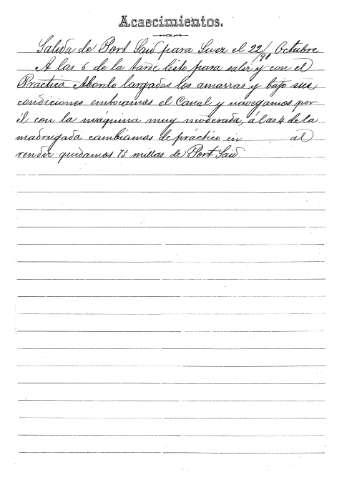 Acaecimientos.
Salida de Port Said para Suez el 22/98 Octubre
A las 6 de la tarde listo para salir y con el
Práctico Abordo largados las amarras y bajo sus
condiciones embocamos el Canal y navegamos por
él con la máquina muy moderada, á las 4 de la
madrugada cambiamos de práctico en al
rendir quedamos 75 millas de Port Said